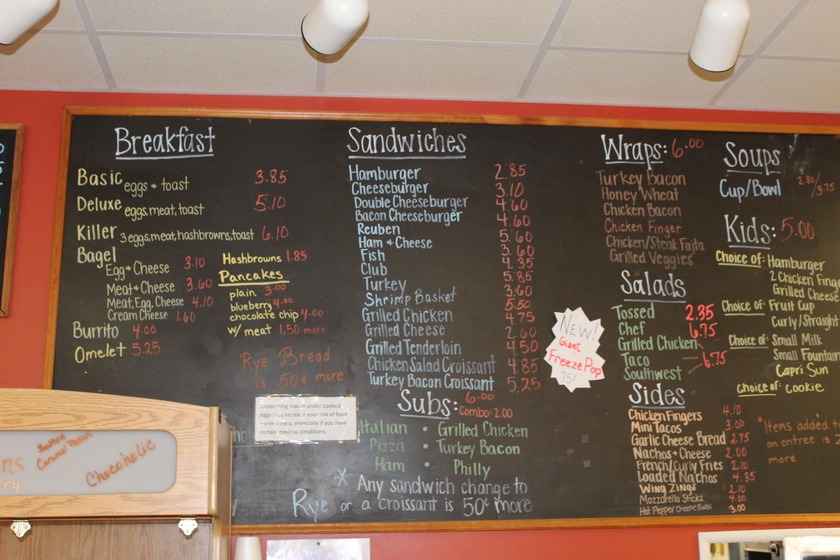 Breakfast
Basic eggs + toast 3.85
Deluxe eggs, meat, toast 5.10
Killer 3 eggs, meat, hashbrowns, toast 6.10
Bagel
Egg + Cheese 3.10
Meat + Cheese 3.60
Meat, Egg, Cheese 4.10
Cream Cheese 1.60
Burrito 4.00
Omelet 5.25
Hashbrowns 1.85
Pancakes
plain 3.00
blueberry 4.00
chocolate chip 4.00
w/ meat 1.50 more
Rye Bread
is 50¢ more
Sandwiches
Hamburger 2.85
Cheeseburger 3.10
Double Cheeseburger 4.60
Bacon Cheeseburger 4.60
Reuben 5.60
Ham + Cheese 3.60
Fish 4.35
Club 5.85
Turkey 3.60
Shrimp Basket 5.50
Grilled Chicken 4.75
Grilled Cheese 2.60
Grilled Tenderloin 4.50
Chicken Salad Croissant 4.85
Turkey Bacon Croissant 5.25
Subs: 6.00
Combo: 2.00
Italian • Grilled Chicken
Pizza • Turkey Bacon
Ham • Philly
* Any sandwich change to
Rye or a croissant is 50¢ more
NEW!
Giant
Freeze Pop
75¢
Wraps: 6.00
Turkey Bacon
Honey Wheat
Chicken Bacon
Chicken Finger
Chicken/Steak Fajita
Grilled Veggies
Salads
Tossed 2.85
Chef 6.75
Grilled Chicken
Taco 6.75
Southwest
Sides
Chicken Fingers 4.10
Mini Tacos 3.00
Garlic Cheese Bread 2.75
Nachos + Cheese 2.00
French/Curly Fries 2.10
Loaded Nachos 4.35
Wing Zings
Mozzarella Sticks 4.10
Hot Pepper Cheese Balls 3.00
Soups
Cup/Bowl
Kids: 5.00
Choice of: Hamburger
2 Chicken Fing
Grilled Cheese
Choice of: Fruit Cup
Curly/Straight
Choice of: Small Milk
Small Fountain
Capri Sun
Choice of: Cookie
Items added t
an entree is 2
more
Consuming raw or under cooked
eggs may increase your risk of food
borne illness, especially if you have
certain medical conditions
Salted
Caramel
Chocoholic